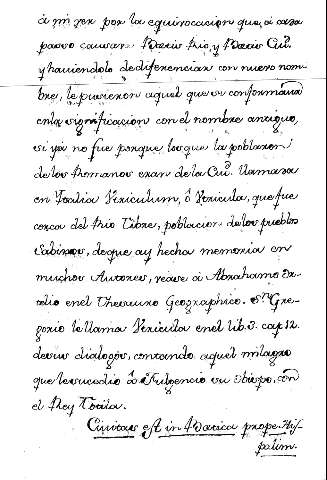 à mi ver por la equivocacion que, à cada
passo causan Baetis Rio, y Baetis Ciu.ᵈ
y haviendolo de diferenciar con nuevo nom-
bre, le pusieron aquel que se conformaua
en la significacion con el nombre antiguo,
si ya no fue porque los que la poblaron
de los Romanos eran de la Ciu.ᵈ llamada
en Ytalia Vtriculum, ô Vtricula, que fue
cerca del Rio Tibre, poblacion de los pueblos
Sabinos, de que ay hecha memoria en
muchos Autores, vease à Abrahamo Or-
telio en el Thesauro Geographico. Sⁿ Gre-
gorio le llama Vtricula en el lib. 3. cap. 12.
de sus dialogos, contando aquel milagro
que le sucedio à Fulgencio su obispo, con
el Rey Totila.
Civitas est in Baetica prope His-
palim.